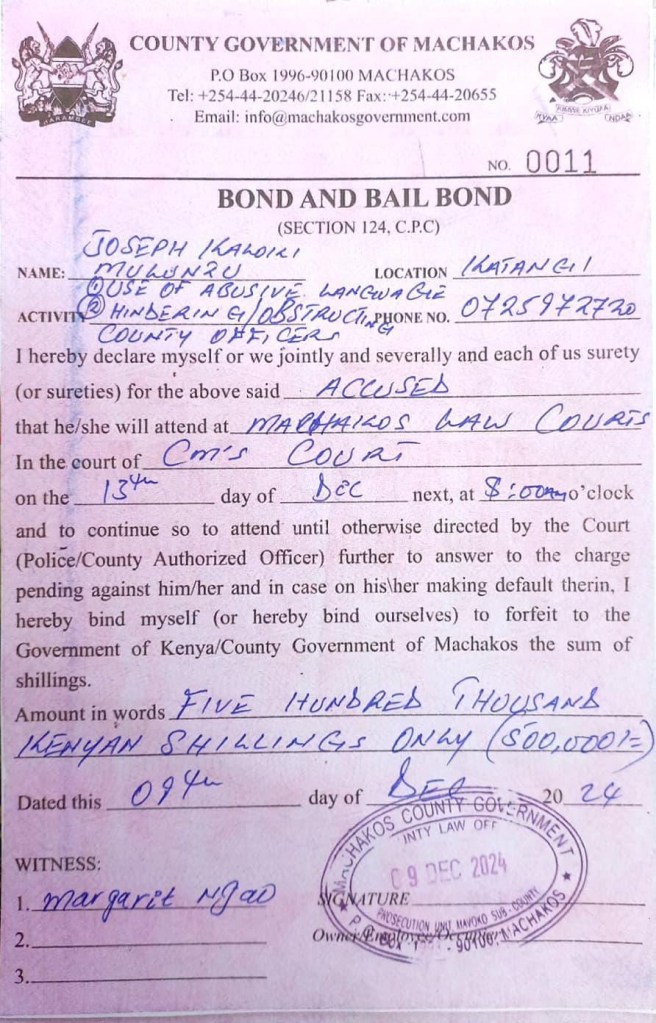 COUNTY GOVERNMENT OF MACHAKOS
P.O Box 1996-90100 MACHAKOS
Tel: +254-44-20246/21158 Fax: +254-44-20655
Email: info@machakosgovernment.com
HARAMBEE
NO. 0011
BOND AND BAIL BOND
(SECTION 124, C.P.C)
JOSEPH
NAME: LOCATION KATANGI
① USE OF ABUSIVE LANGWAGE
ACTIVITY ② HINDERING/OBSTRUCTING PHONE NO. 0725972720
COUNTY OFFICERS
I hereby declare myself or we jointly and severally and each of us surety
(or sureties) for the above said ACCUSED
that he/she will attend at MACHAKOS LAW COURTS
In the court of CM'S COURT
on the 13th day of DEC next, at 8:00am o'clock
and to continue so to attend until otherwise directed by the Court
(Police/County Authorized Officer) further to answer to the charge
pending against him/her and in case on his\her making default therin, I
hereby bind myself (or hereby bind ourselves) to forfeit to the
Government of Kenya/County Government of Machakos the sum of
shillings.
Amount in words FIVE HUNDRED THOUSAND
KENYAN SHILLINGS ONLY (500,000/=)
Dated this 09th day of DEC 2024
MACHAKOS COUNTY GOVERNMENT
NTY LAW OFF
09 DEC 2024
PROSECUTION UNIT MAVOKO SUB-COUNTY
90100, MACHAKOS
WITNESS:
1. Margarit Ngao SIGNATURE
2.
3.